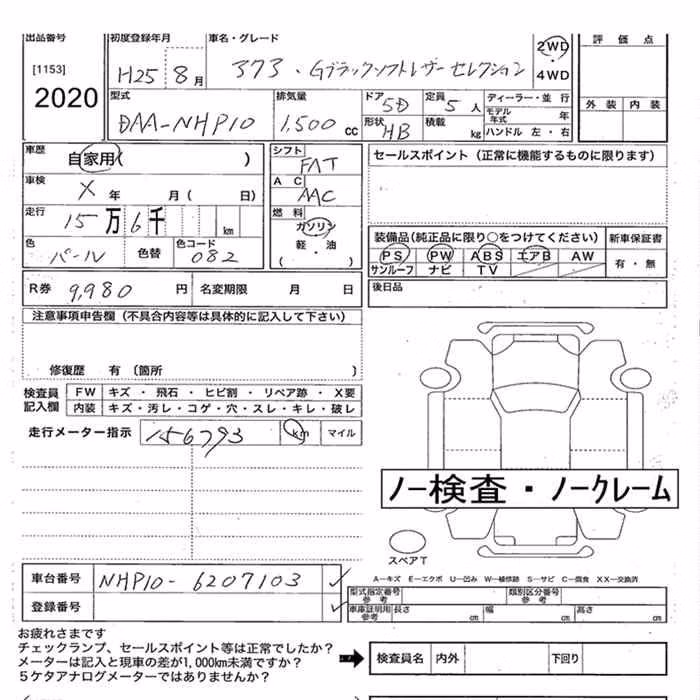 出品番号 初度登録年月 車名・グレード 2WD 評価点
[1153] H25 8月 373・Gブラックソフトレザーセレクション 4WD
2020 型式 排気量 ドア 定員 ディーラー・並行 外装 内装
DAA-NHP10 1,500cc 5D 5人 モデル年式 年
形状 HB 積載 kg ハンドル 左・右
車歴 自家用( ) シフト FAT セールスポイント(正常に機能するものに限ります)
車検 X 年 月( 日) AC AAC
走行 15万6千 km 燃料 ガソリン 装備品(純正品に限り○をつけてください) 新車保証書
色 パール 色替 色コード 082 軽・油 ( ) PS PW ABS エアB AW 有・無
サンルーフ ナビ TV
R券 9,980円 名変期限 月 日 後日品
注意事項申告欄(不具合内容等は具体的に記入して下さい)
修復歴 有(箇所 )
検査員記入欄 FW キズ・飛石・ヒビ割・リペア跡・X要
内装 キズ・汚レ・コゲ・穴・スレ・キレ・破レ
走行メーター指示 156793 km マイル
ノー検査・ノークレーム
スペアT
A―キズ E―エクボ U―凹み W―補修跡 S―サビ C―腐食 XX―交換済
車台番号 NHP10-6207103 型式指定番号 参考 類別区分番号 参考
登録番号 車庫証明用 参考 長さ cm 幅 cm 高さ cm
お疲れさまです
チェックランプ、セールスポイント等は正常でしたか?
メーターは記入と現車の差が1,000km未満ですか?
5ケタアナログメーターではありませんか?
検査員名 内外 下回り